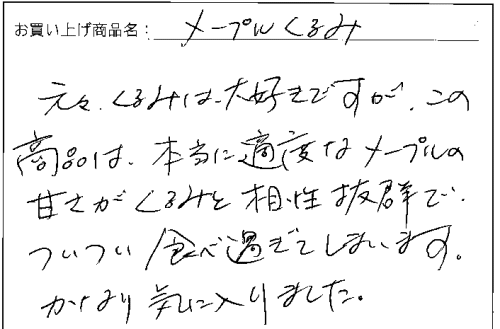 お買い上げ商品名：メープルくるみ
元々、くるみは、大好きですが、この
商品は、本当に適度なメープルの
甘さがくるみと相性抜群で、
ついつい食べ過ぎてしまいます。
かなり気に入りました。